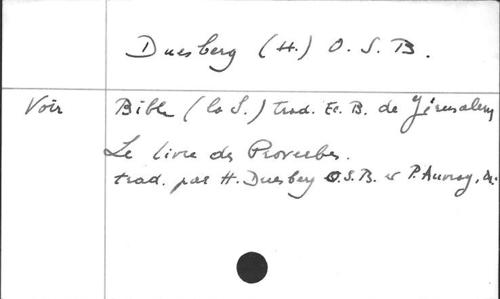 Duesberg (H.) O. S. B.
Voir Bible (la S.) trad. Ec. B. de Jérusalem
Le livre des Proverbes.
trad. par H. Duesberg O.S.B. et P. Auvray,